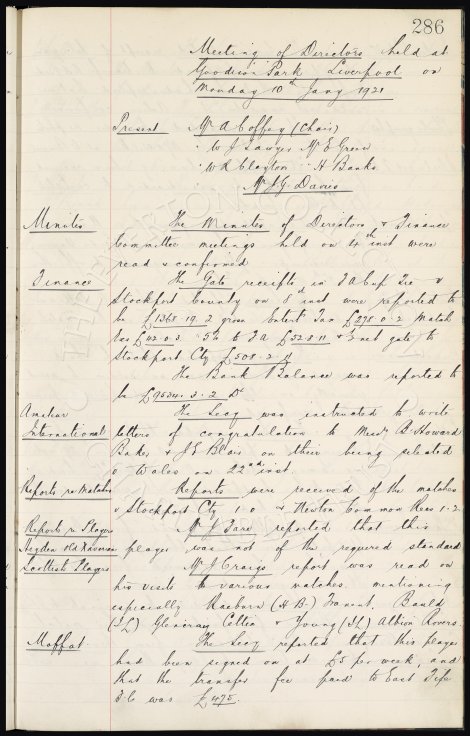 286
Meeting of Directors held at
Goodison Park Liverpool on
Monday 10th Jany 1921
Present Mr A Coffey (Chair)
" W J Sawyer Mr E Green
" W R Clayton " H Banks
Mr J G Davies
Minutes The Minutes of Directors & Finance
Committee meetings held on 4th inst were
read & confirmed
Finance The Gate receipts in FA Cup Tie v
Stockport County on 8th inst were reported to
be £1365.19.2 gross Entert Tax £275.0.2 Match
£42.0.3 5% to FA £52.8.11 & net gate to
Stockport Cty £508.2.4
The Bank Balance was reported to
be £9534.3.2 Dr
Amateur The Secy was instructed to write
International letters of congratulation to Messrs B. Howard
Baker & J E Blair on their being selected
v Wales on 22nd inst
Reports re Matches Reports were received of the matches
v Stockport Cty 1-0 & Newton Common Recs 1-2
Reports re Players Mr J Fare reported that this
player was not of the required standard
Scottish Players Mr J Craigs report was read on
his visits to various matches mentioning
especially Raeburn (HB) Bauld
(IL) Celtic & Young (IL) Albion Rovers.
Moffat. The Secy reported that this player
had been signed on at £5 per week, and
that the transfer fee paid to East Fife
F.C was £475.